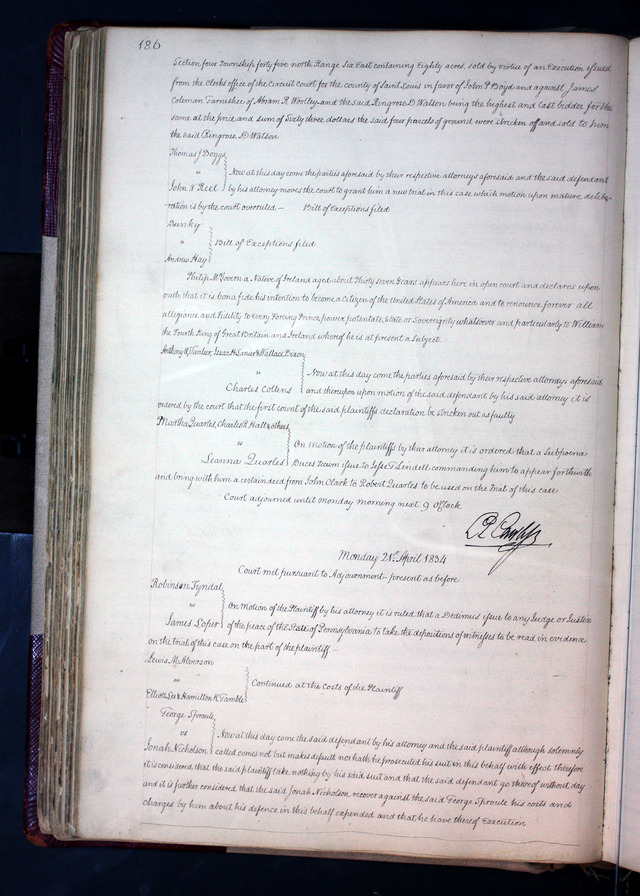 186
Section four Township forty five north Range Six East containing Eighty acres, sold by virtue of an Execution issued
from the Clerks office of the Circuit court for the county of Saint Louis in favor of John P Boyd and against James
Coleman Garnishee of Abram R Worlley and the said Ringrose D Watson being the highest and last bidder for the
same at the price and sum of Sixty three dollars the said four parcels of ground were stricken off and sold to him
the said Ringrose D Watson
Thomas J Boggs
vs
John N Reel
Now at this day come the parties aforesaid by their respective attorneys aforesaid and the said defendant
by his attorney moves the court to grant him a new trial in this case which motion upon mature delibe-
ration is by the court overruled — Bill of Exceptions filed
Dunky
vs
Andrew Hay
Bill of Exceptions filed
Philip McGovern a Native of Ireland aged about Thirty Seven Years appears here in open court and declares upon
oath that it is bona fide his intention to become a Citizen of the United States of America and to renounce forever all
allegiance and Fidelity to every Foreing Prince, power, potentate, State or Sovereignty whatsoever and particularly to William
the Fourth King of Great Britain and Ireland whereof he is at present a Subject
Anthony W Vanlear, Isaac H Lanier & Wallace Dixon
vs
Charles Collins
Now at this day come the parties aforesaid by their respective attorneys aforesaid
and thereupon upon motion of the said defendant by his said attorney it is
ordered by the court that the first count of the said plaintiffs declaration be stricken out as faulty
Martha Quarles, Charles R Hall & others
vs
Leanna Quarles
On motion of the plaintiffs by their attorney it is ordered that a Subpoena
Duces Tecum issue to Jesse G Lindell commanding him to appear forthwith
and bring with him a certain deed from John Clark to Robert Quarles to be used on the trial of this case
Court adjourned until monday morning next 9 O'Clock
Monday 21st April 1834
Court met pursuant to Adjournment present as before
Robinson Tyndal
vs
James Loper
On motion of the Plaintiff by his attorney it is ruled that a Dedimus issue to any Judge or Justice
of the peace of the State of Pennsylvania to take the depositions of witnesses to be read in evidence
on the trial of this case on the part of the plaintiff
Lewis M Alverson
vs
Elliott Lee & Hamilton R Gamble
Continued at the Costs of the Plaintiff
George Sproule
vs
Jonah Nicholson
Now at this day come the said defendant by his attorney and the said plaintiff although solemnly
called comes not but makes default nor hath he prosecuted his suit in this behalf with effect therefore
it is considered that the said plaintiff take nothing by his said suit and that the said defendant go thereof without day
and it is further considered that the said Jonah Nicholson recover against the said George Sproule his costs and
charges by him about his defence in this behalf expended and that he have thereof Execution